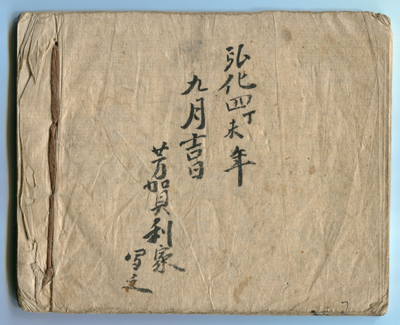 弘化四丁未年
九月吉日
芳賀利家
写之